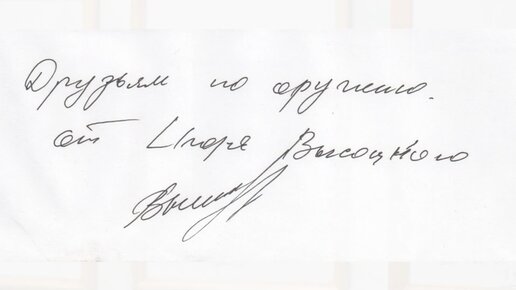 Друзьям по оружию.
от Игоря Высоцкого